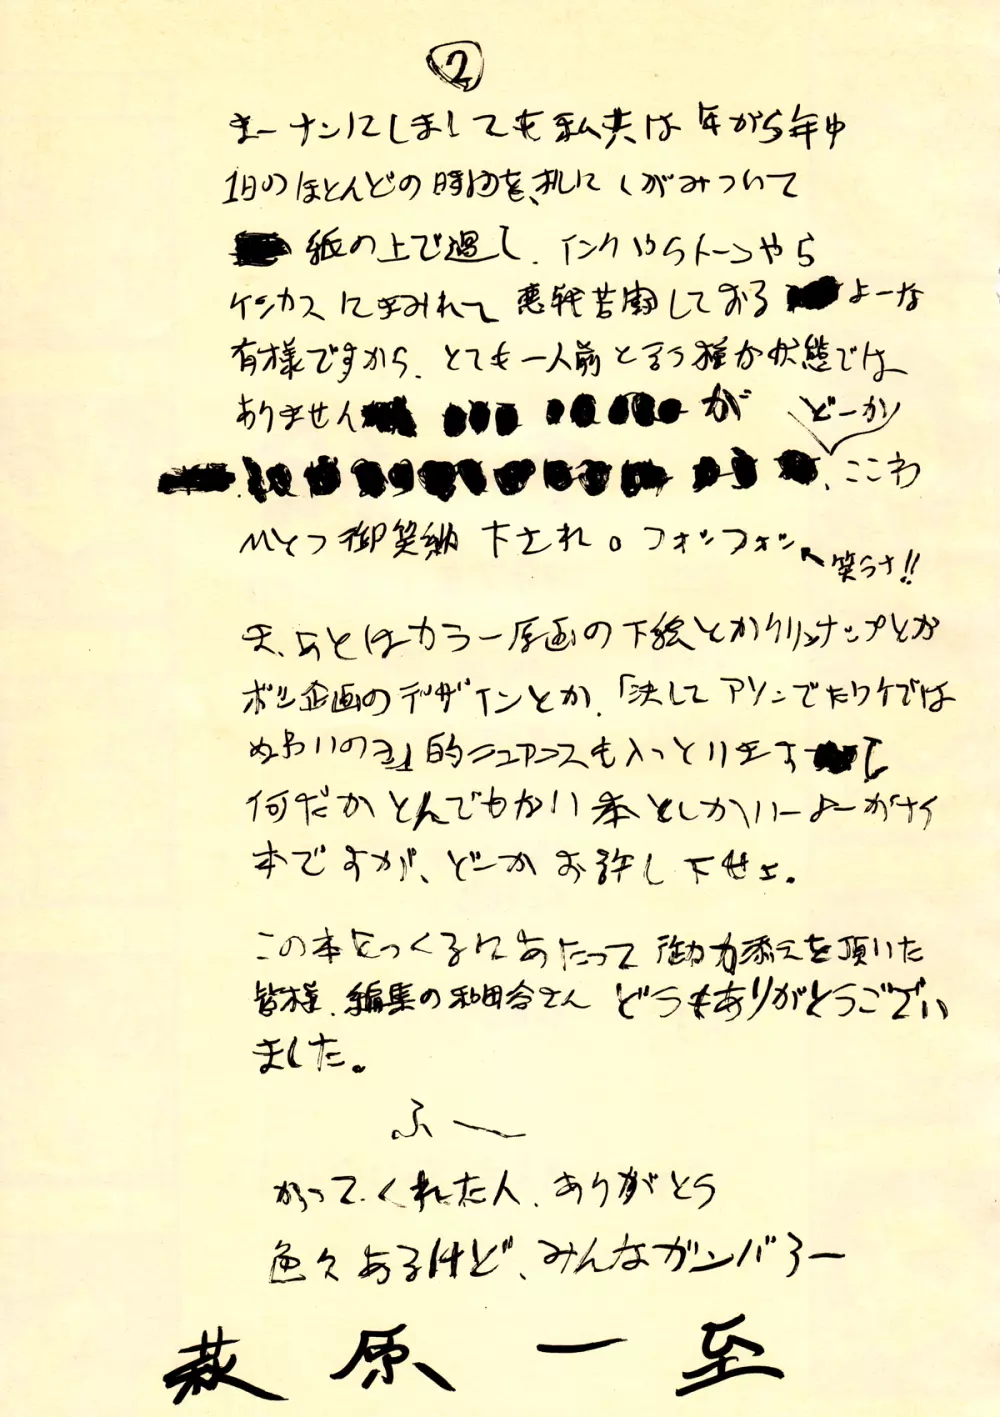 ②
まーナンにしましても私共は年がら年中
1日のほとんどの時間を、机にしがみついて
紙の上で過し、インクやらトーンやら
ケシカスにまみれて悪戦苦闘しておるよーな
有様ですから、とても一人前と言う様な状態では
ありませんが どーか
、ここわ
ひとつ御笑納下され。フォッフォッ
笑うな!!
ま、あとはカラー原画の下絵とかクリンナップとか
ボツ企画のデザインとか、「決してアソンでたワケでは
ぬぁいのヨ」的ニュアンスも入っとりますし
何だかとんでもない本としかいーよーがナイ
本ですが、どーかお許し下せェ。
この本をつくるにあたって御力添えを頂いた
皆様、編集の和田さん どうもありがとうござい
ました。
ふー
かってくれた人、ありがとう
色々あるけど、みんなガンバろー
萩原一至